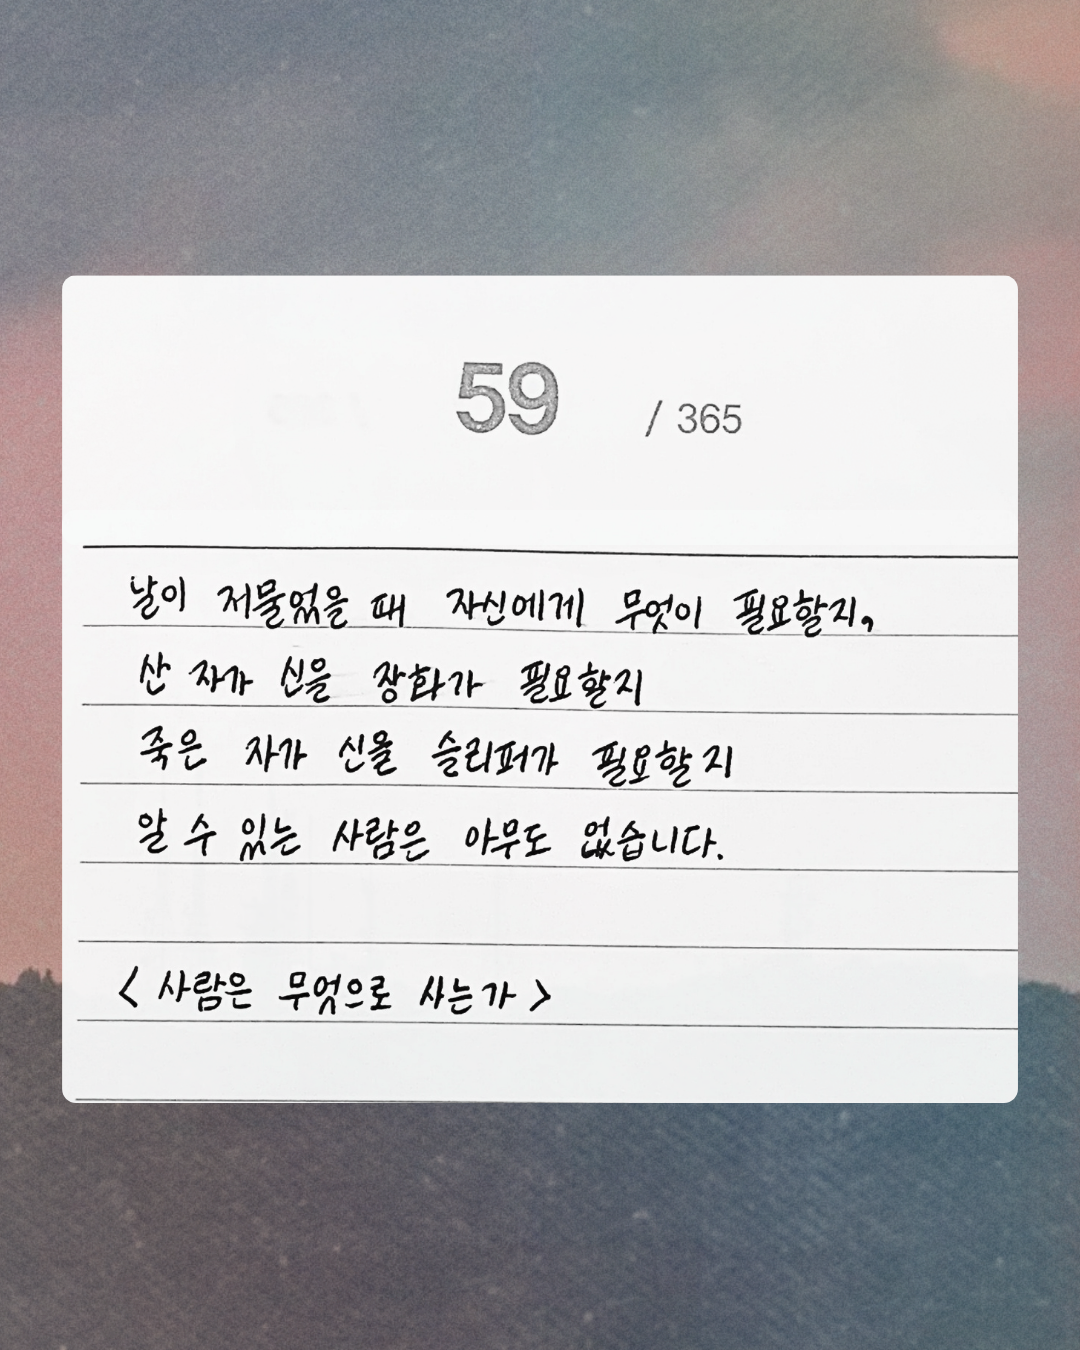 59 / 365
날이 저물었을 때 자신에게 무엇이 필요할지,
산 자가 신을 장화가 필요할지
죽은 자가 신을 슬리퍼가 필요할지
알 수 있는 사람은 아무도 없습니다.
< 사람은 무엇으로 사는가 >